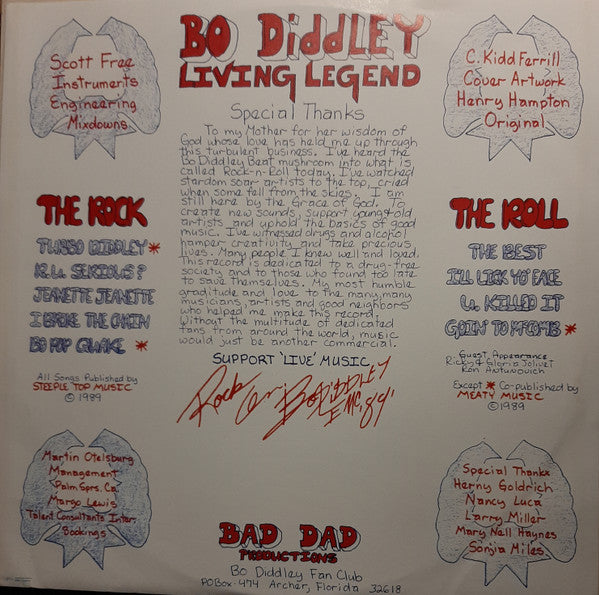 BO DIDDLEY
LIVING LEGEND
Scott Free
Instruments
Engineering
Mixdowns
C. Kidd Ferrill
Cover Artwork
Henry Hampton
Original
Special Thanks
To my Mother for her wisdom of
God whose love has held me up through
this turbulent business. I've heard the
Bo Diddley Beat mushroom into what is
called Rock-n-Roll today. I've watched
stardom soar artists to the top, cried
when some fell from the skies. I am
still here by the Grace of God. To
create new sounds, support young & old
artists and uphold the basics of good
music. I've witnessed drugs and alcohol
hamper creativity and take precious
lives. Many people I knew well and loved.
This record is dedicated to a drug-free
society and to those who found too late
to save themselves. My most humble
gratitude and love to the many, many
musicians, artists and good neighbors
who helped me make this record.
Without the multitude of dedicated
fans from around the world, music
would just be another commercial.
SUPPORT 'LIVE' MUSIC
Rock On. Bo DIDDLEY
89'
THE ROCK
TURBO DIDDLEY *
R.U. SERIOUS?
JEANETTE JEANETTE
I BROKE THE CHAIN
BO POP QUAKE *
All Songs Published by
STEEPLE TOP MUSIC
© 1989
THE ROLL
THE BEST
I'LL LICK YO' FACE
U. KILLED IT
GOIN' TO M'COMB *
Guest Appearance
Ricky & Gloria Jolivet
Ron Antunovich
Except * Co-published by
MEATY MUSIC
© 1989
Martin Otelsburg
Management
Palm Sprs. Ca.
Margo Lewis
Talent Consultants Inter.
Bookings
Special Thanks
Herny Goldrich
Nancy Luca
Larry Miller
Mary Nell Haynes
Sonjia Miles
BAD DAD
PRODUCTIONS
Bo Diddley Fan Club
PO Box - 474 Archer, Florida 32618